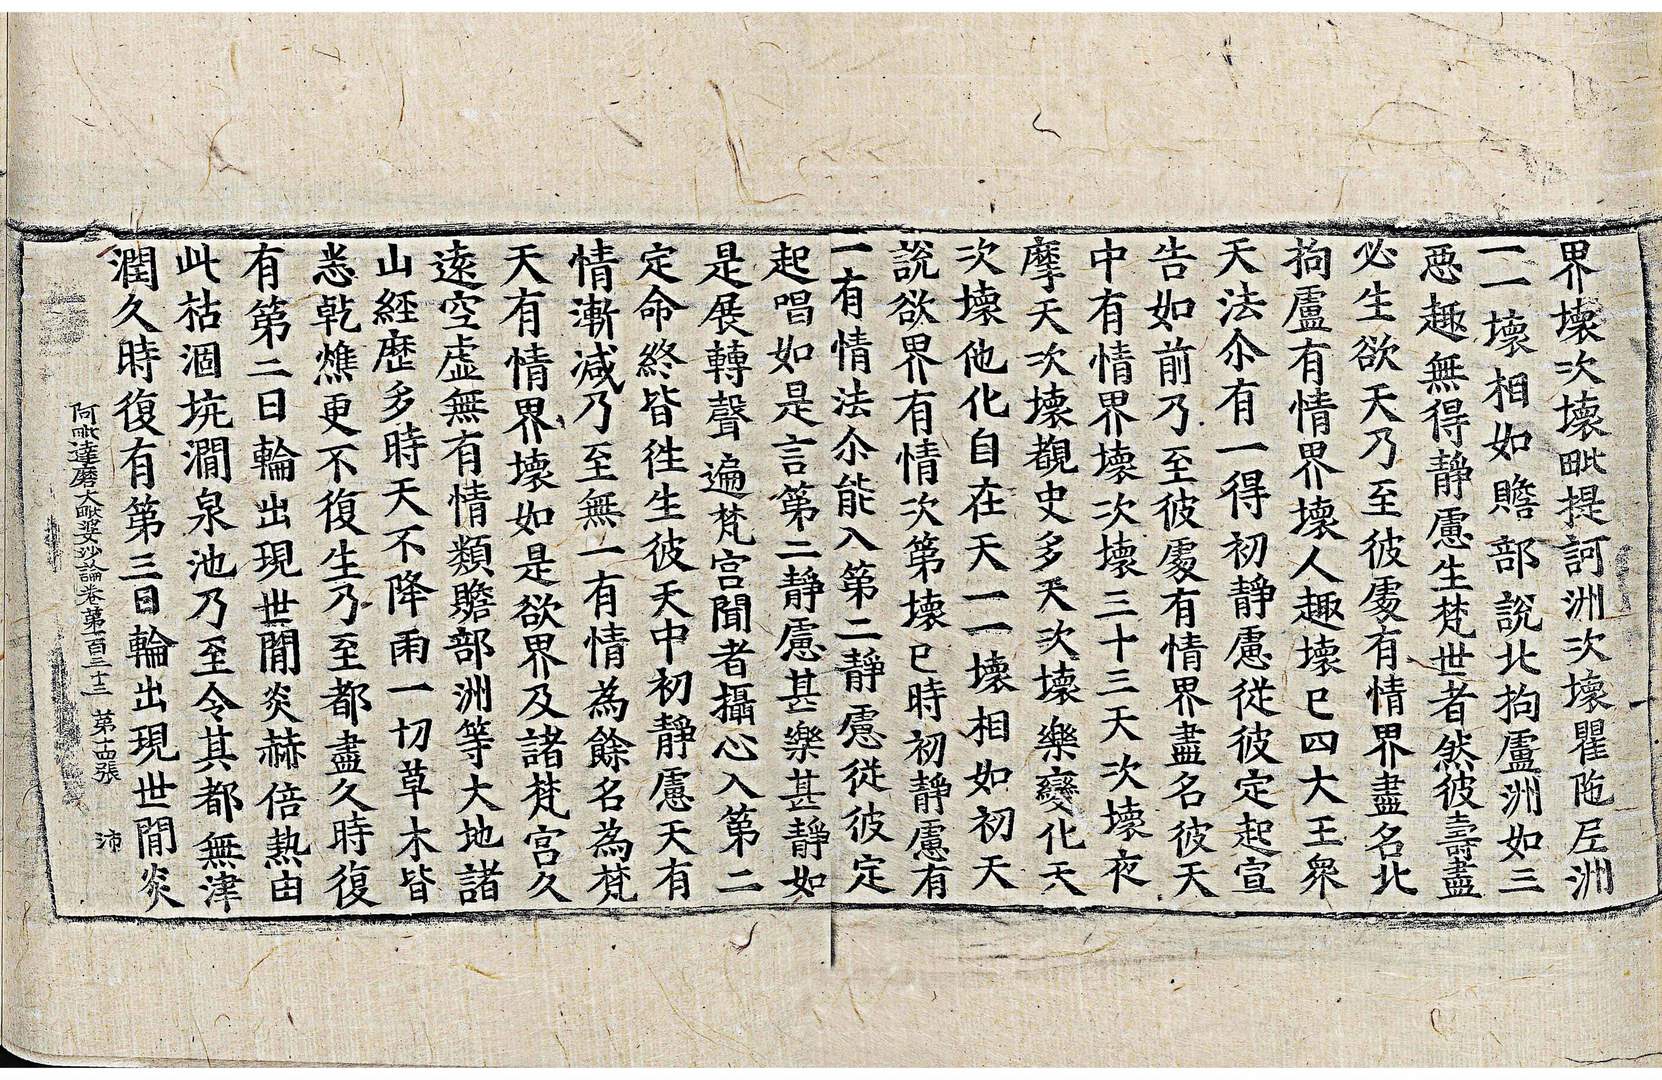 界壞次壞毗提訶洲次壞瞿陁尼洲
一一壞相如贍部說北拘盧洲如三
惡趣無得静慮生梵世者然彼壽盡
必生欲天乃至彼處有情界盡名北
拘盧有情界壞人趣壞已四大王衆
天法尒有一得初静慮從彼定起宣
告如前乃至彼處有情界盡名彼天
中有情界壞次壞三十三天次壞夜
摩天次壞覩史多天次壞樂變化天
次壞他化自在天一一壞相如初天
說欲界有情次第壞已時初静慮有
一有情法尒能入第二静慮從彼定
起唱如是言第二静慮甚樂甚静如
是展轉聲遍梵宫聞者攝心入第二
定命終皆徃生彼天中初静慮天有
情漸减乃至無一有情為餘名為梵
天有情界壞如是欲界及諸梵宫久
遠空虚無有情類贍部洲等大地諸
山經歷多時天不降雨一切草木皆
悉乾燋更不復生乃至都盡久時復
有第二日輪出現世間炎赫倍熱由
此枯涸坑澗泉池乃至令其都無津
潤久時復有第三日輪出現世間炎
阿毗達磨大毗婆沙論卷第一百三十三 第十四張 沛